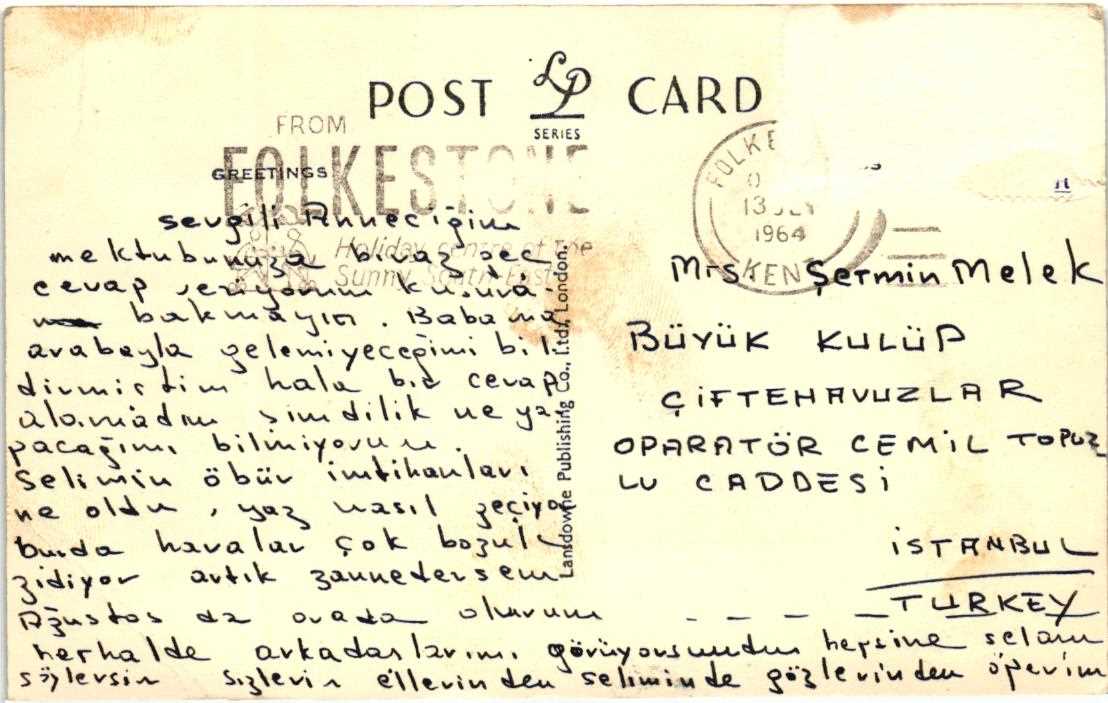 POST LP CARD
SERIES
FROM
FOLKESTONE
GREETINGS
Holiday centre of the
Sunny South East
FOLKE
13 JLY
1964
KENT
Sevgili Anneciğim
mektubunuza biraz geç
cevap veriyorum kusura
bakmayın. Babama
arabayla gelemiyeceğimi bil
dirmiştim hala bir cevap
alamadım şimdilik ne ya
pacağımı bilmiyorum.
Selimin öbür imtihanları
ne oldu, yaz nasıl geçiyor
burda havalar çok bozuk
gidiyor artık zannedersem
Ağustos da orada olurum _ _ _ _
herhalde arkadaşlarımı görüyorsundur hepsine selam
söylersin sizlerin ellerinden seliminde gözlerinden öperim
Lansdowne Publishing Co., Ltd., London.
Mrs Şermin Melek
BÜYÜK KULÜP
ÇİFTEHAVUZLAR
OPARATÖR CEMİL TOPUZ
LU CADDESİ
İSTANBUL
TURKEY